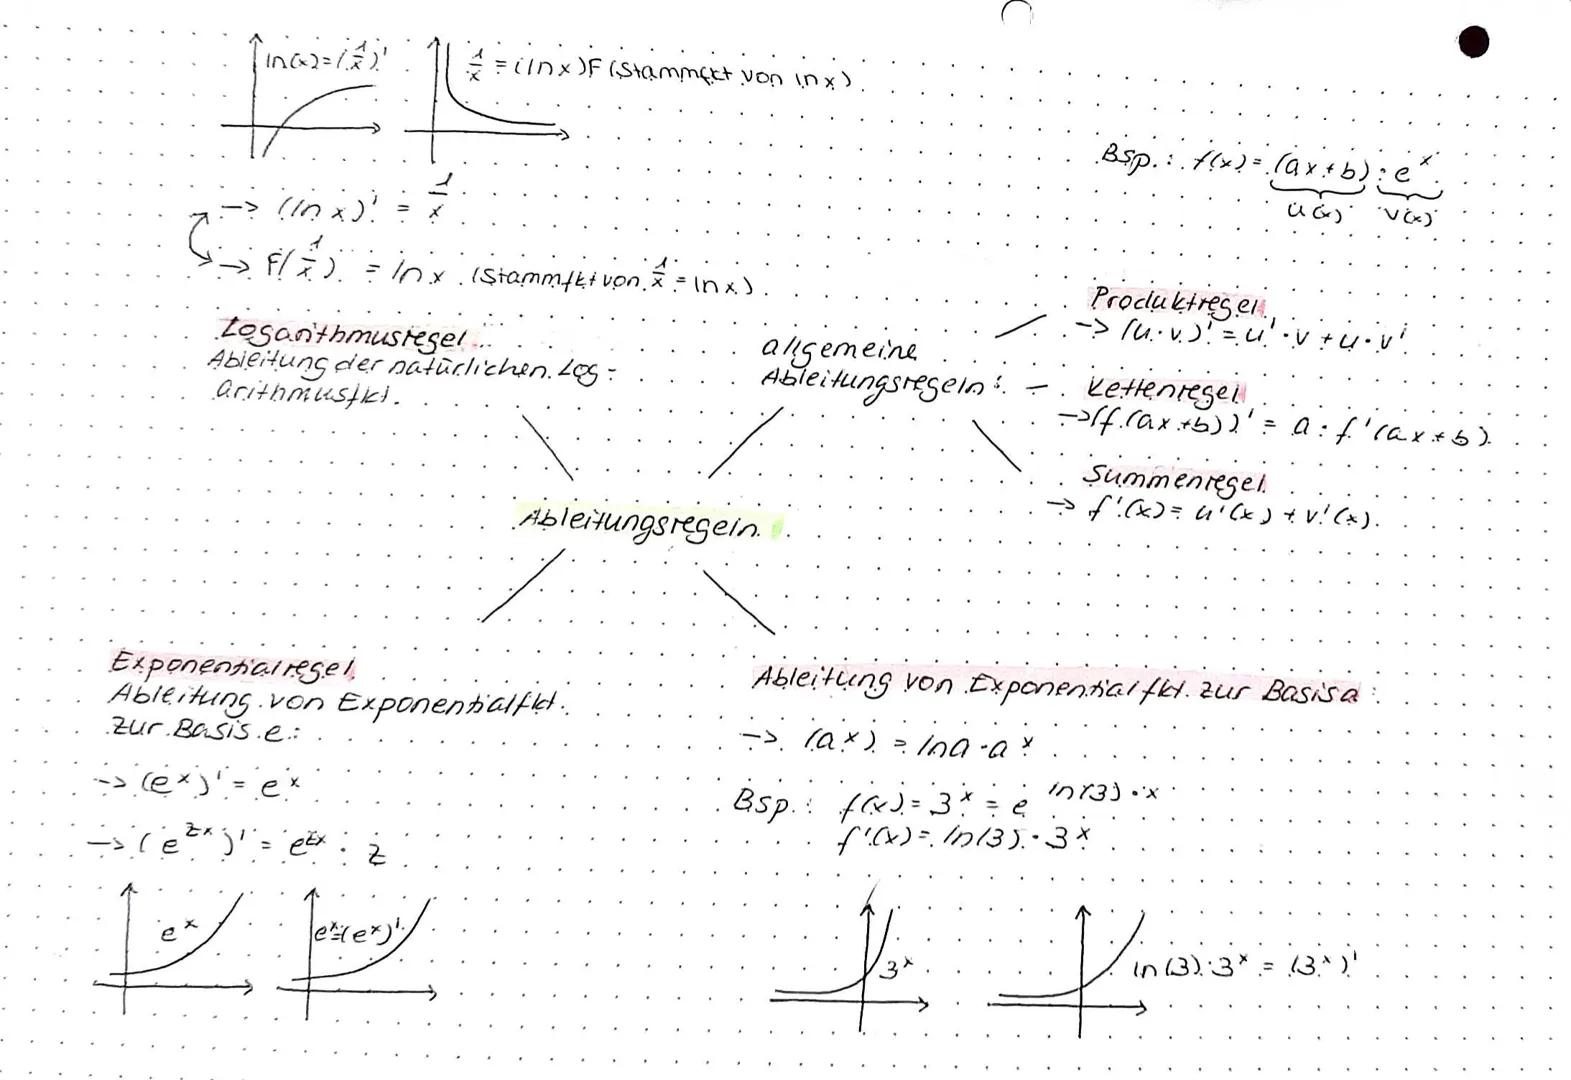 ln(x)=(1/x)'
1/x = (ln x)F (Stammfkt von ln x)
→ (ln x)' = 1/x
→ F(1/x) = ln x (Stammfkt von 1/x = ln x)
Bsp.: f(x) = (ax+b) · e^x
u(x) v(x)
Logarithmusregel
Ableitung der natürlichen Log-
arithmusfkt.
allgemeine
Ableitungsregeln:
Produktregel
→ (u·v)' = u'·v + u·v'
Kettenregel
→ (f(ax+b))' = a · f'(ax+b)
Summenregel
→ f'(x) = u'(x) + v'(x)
Ableitungsregeln
Exponentialregel
Ableitung von Exponentialfkt.
zur Basis e:
→ (e^x)' = e^x
→ (e^zx)' = e^zx · z
e^x
e^x=(e^x)'
Ableitung von Exponentialfkt. zur Basis a:
→ (a^x) = ln a · a^x
Bsp.: f(x) = 3^x = e^ln(3)·x
f'(x) = ln(3) · 3^x
3^x
ln(3)·3^x = (3^x)'